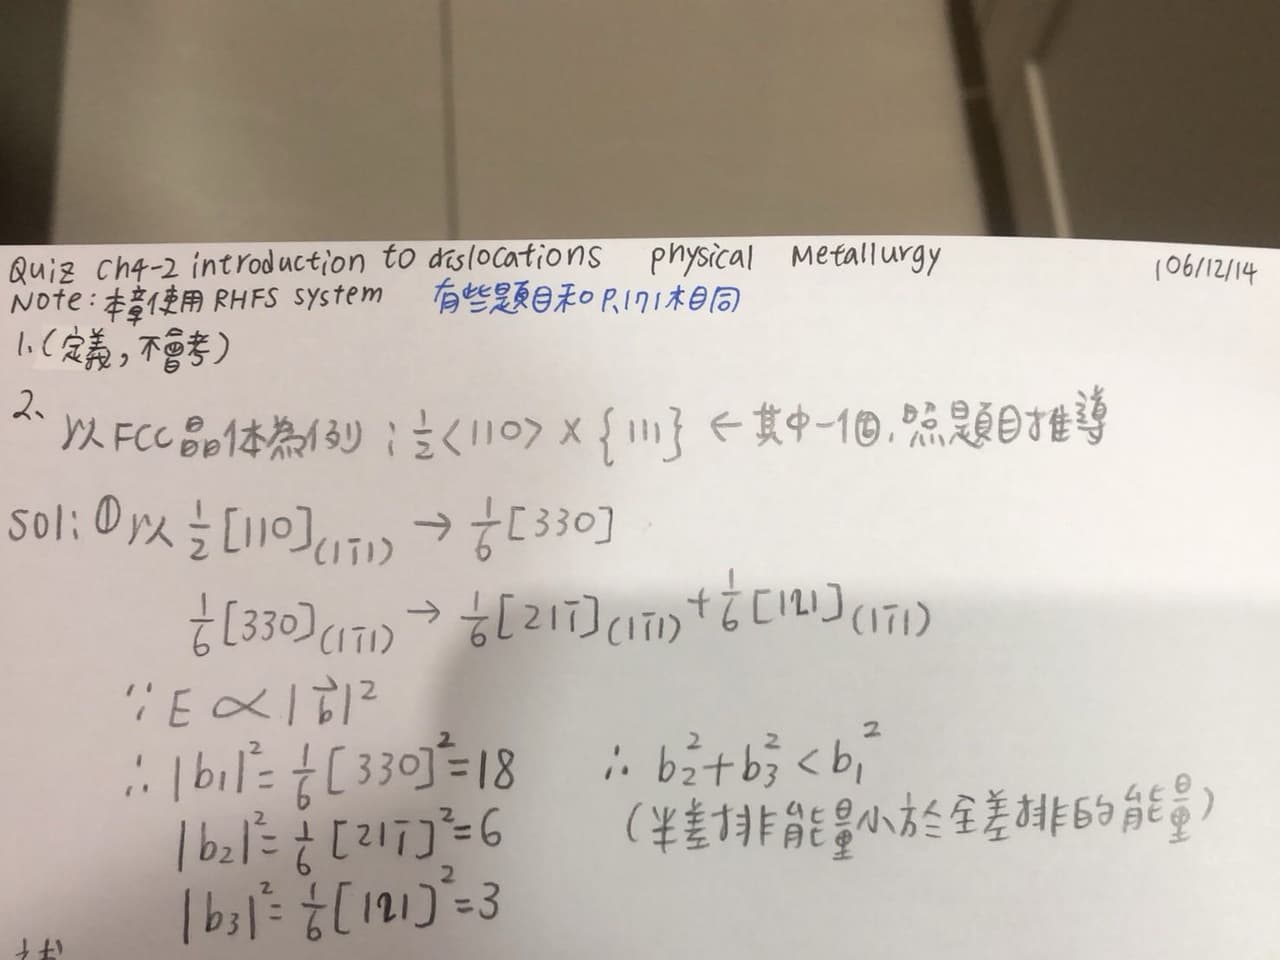 Quiz Ch4-2 introduction to dislocations physical Metallurgy 106/12/14
Note: 本章使用 RHFS system 有些題目和 P.171 相同
1.(定義,不會考)
2. 以FCC晶体為例 : 1/2<110> × {111} ← 其中一個, 照題目推導
sol: ① 以 1/2[110](11̄1) → 1/6[330]
1/6[330](11̄1) → 1/6[211̄](11̄1) + 1/6[121](11̄1)
∵ E ∝ |b⃗|²
∴ |b₁|² = 1/6[330]² = 18 ∴ b₂² + b₃² < b₁²
|b₂|² = 1/6[211̄]² = 6 (半差排能量小於全差排的能量)
|b₃|² = 1/6[121]² = 3